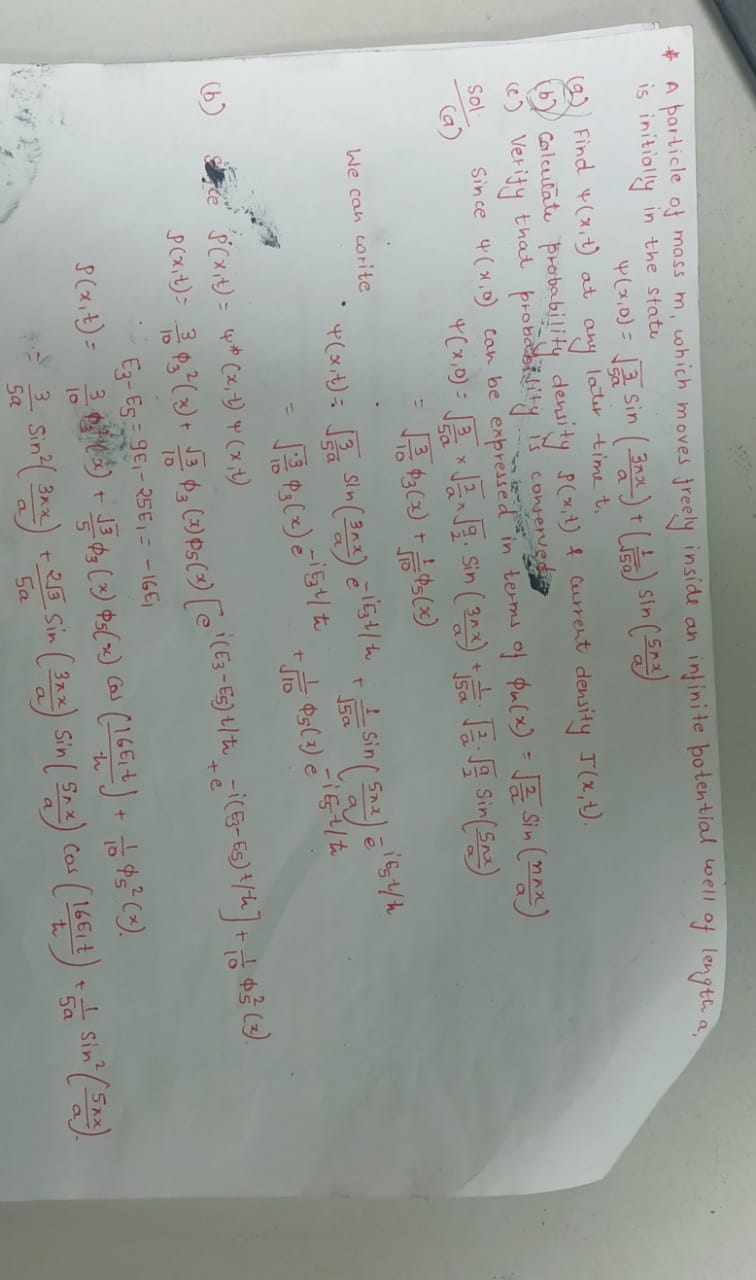 * A particle of mass m, which moves freely inside an infinite potential well of length a,
is initially in the state
ψ(x,0) = √(3/5a) Sin (3πx/a) + (1/√5a) Sin (5πx/a)
(a) Find ψ(x,t) at any later time t.
(b) Calculate probability density ρ(x,t) & current density J(x,t).
(c) Verify that probability is conserved
Sol Since ψ(x,0) can be expressed in terms of φn(x) = √(2/a) Sin (nπx/a)
(a) ψ(x,0) = √(3/5a) × √(2/a) × √(a/2) · Sin (3πx/a) + 1/√5a · √(2/a) · √(a/2) Sin (5πx/a)
= √(3/10) φ3(x) + 1/√10 φ5(x)
We can write
ψ(x,t) = √(3/5a) Sin (3πx/a) e^(-iE3t/ħ) + 1/√5a Sin (5πx/a) e^(-iE5t/ħ)
= √(3/10) φ3(x) e^(-iE3t/ħ) + 1/√10 φ5(x) e^(-iE5t/ħ)
(b) ρ(x,t) = ψ*(x,t) ψ(x,t)
ρ(x,t) = 3/10 φ3²(x) + √3/10 φ3(x) φ5(x) [e^(i(E3-E5)t/ħ) + e^(-i(E3-E5)t/ħ)] + 1/10 φ5²(x).
E3-E5 = 9E1-25E1 = -16E1
ρ(x,t) = 3/10 φ3²(x) + √3/5 φ3(x) φ5(x) Cos (16E1t/ħ) + 1/10 φ5²(x).
= 3/5a Sin² (3πx/a) + 2√3/5a Sin (3πx/a) Sin (5πx/a) Cos (16E1t/ħ) + 1/5a Sin² (5πx/a).